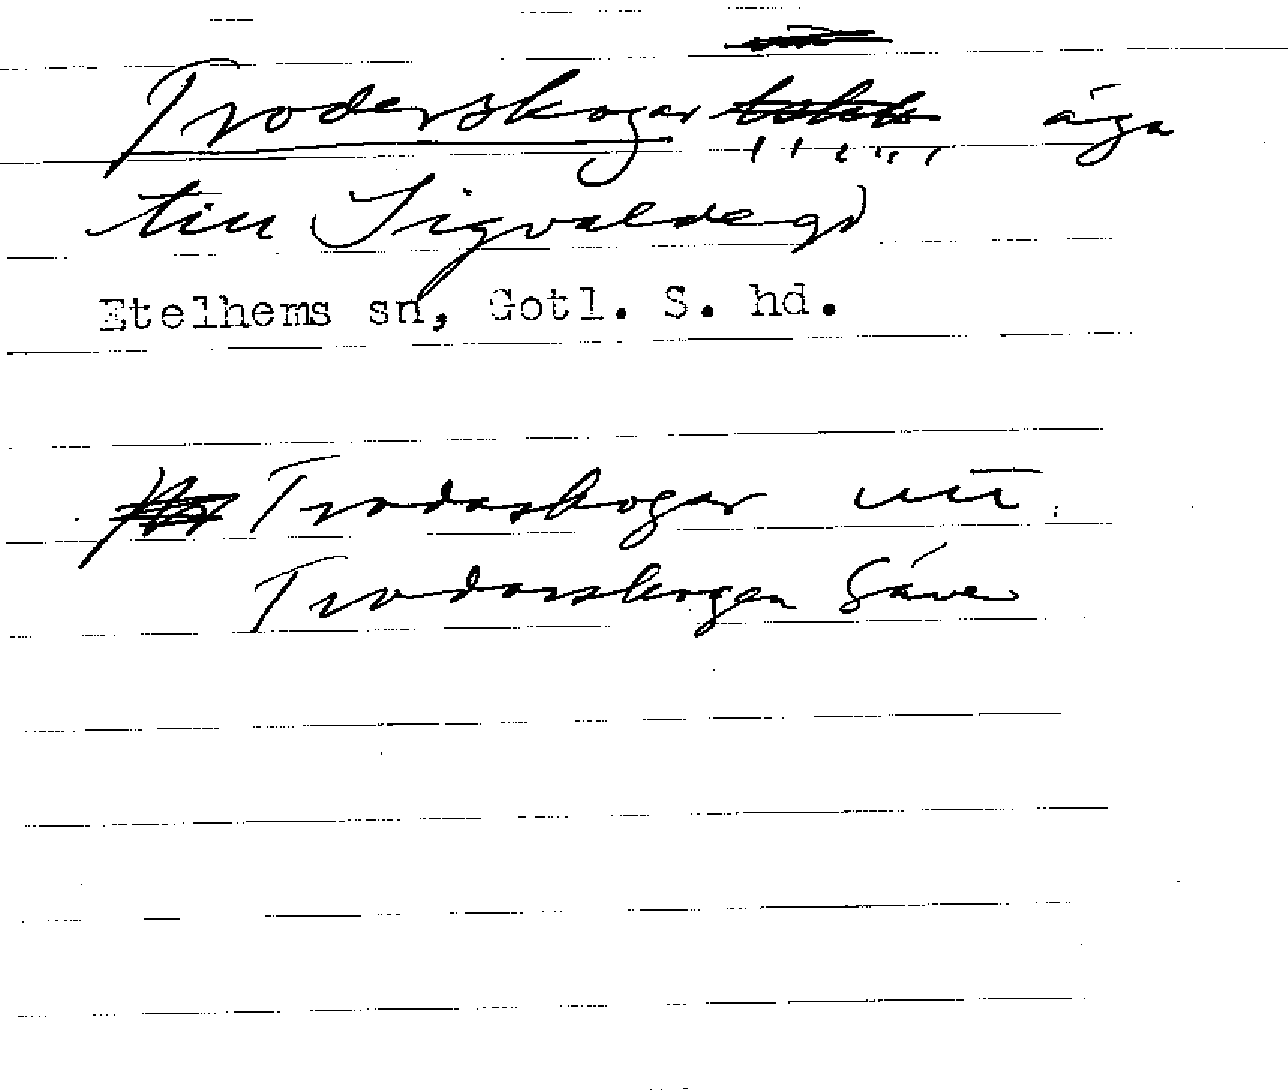 Troderskogar äga
till (Sigvaldegd)
Etelhems sn, Gotl. S. hd.
Trodaskogar
Trodarskogen Säve